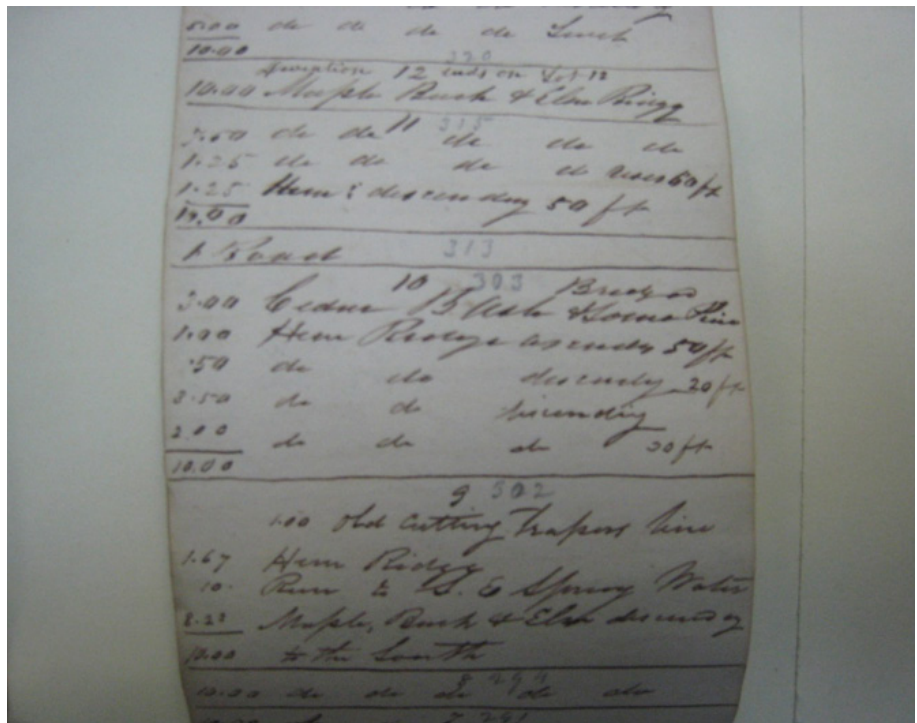 5.00 do do do do South
10.00
320
12 ends on Lot 12
10.00 Maple Birch & Elm Ridge
11 315
do do do do do
1.25 do do do d 50 ft
1.25 Hem: descending 50 ft
10.00
1 Road 313
10 303
3.00 Cedar B Ash & Some Pine
1.00 Hem Ridge ascends 50 ft
.50 do do descends 20 ft
do do
2.00 do do do ft
10.00
9 302
1.00 old cutting Trapers line
1.67 Hem Ridge
10. Run to S. E Spring Water
Maple, Birch & Elm descending
10.00 to the South
8 294
10.00 do do do do do
7 291